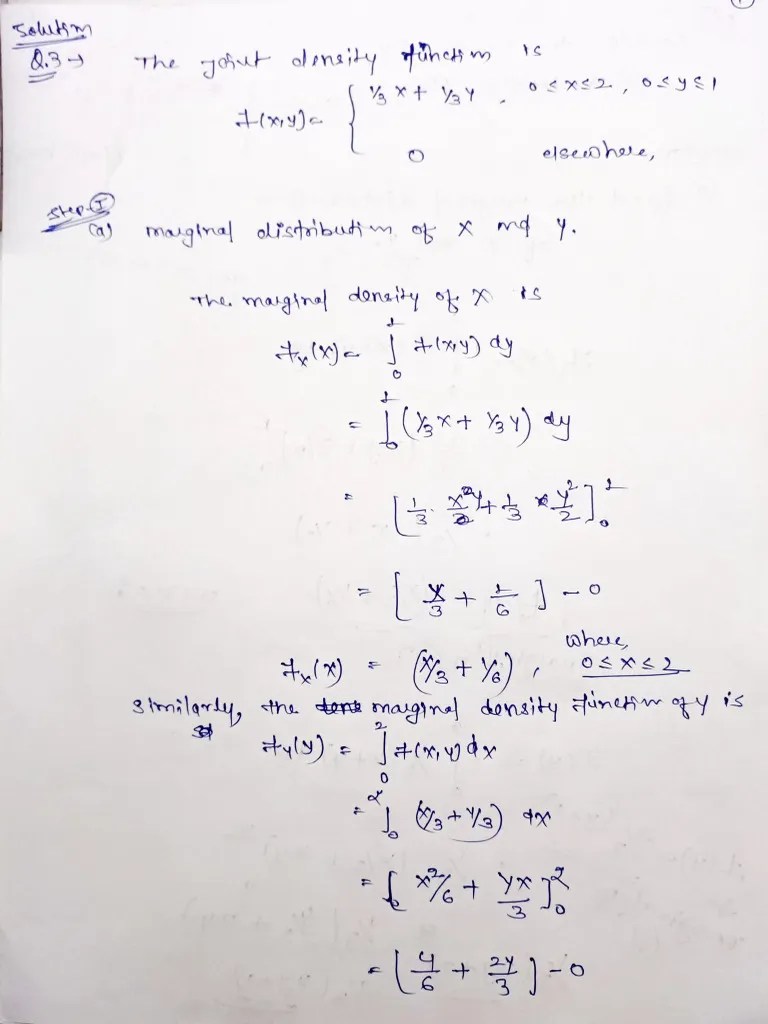 Solution
Q.3 → The joint density function is
f(x,y) = { 1/3 x + 1/3 y , 0 ≤ x ≤ 2, 0 ≤ y ≤ 1
0 elsewhere,
Step-I
(a) marginal distribution of x and y.
The marginal density of x is
f_x(x) = ∫_0^1 f(x,y) dy
= ∫_0^1 (1/3 x + 1/3 y) dy
= [1/3 · xy + 1/3 y²/2]_0^1
= [x/3 + 1/6] - 0
f_x(x) = (x/3 + 1/6), where, 0 ≤ x ≤ 2
Similarly, the marginal density function of y is
f_y(y) = ∫_0^2 f(x,y) dx
= ∫_0^2 (x/3 + y/3) dx
= [x²/6 + yx/3]_0^2
= [4/6 + 2y/3] - 0